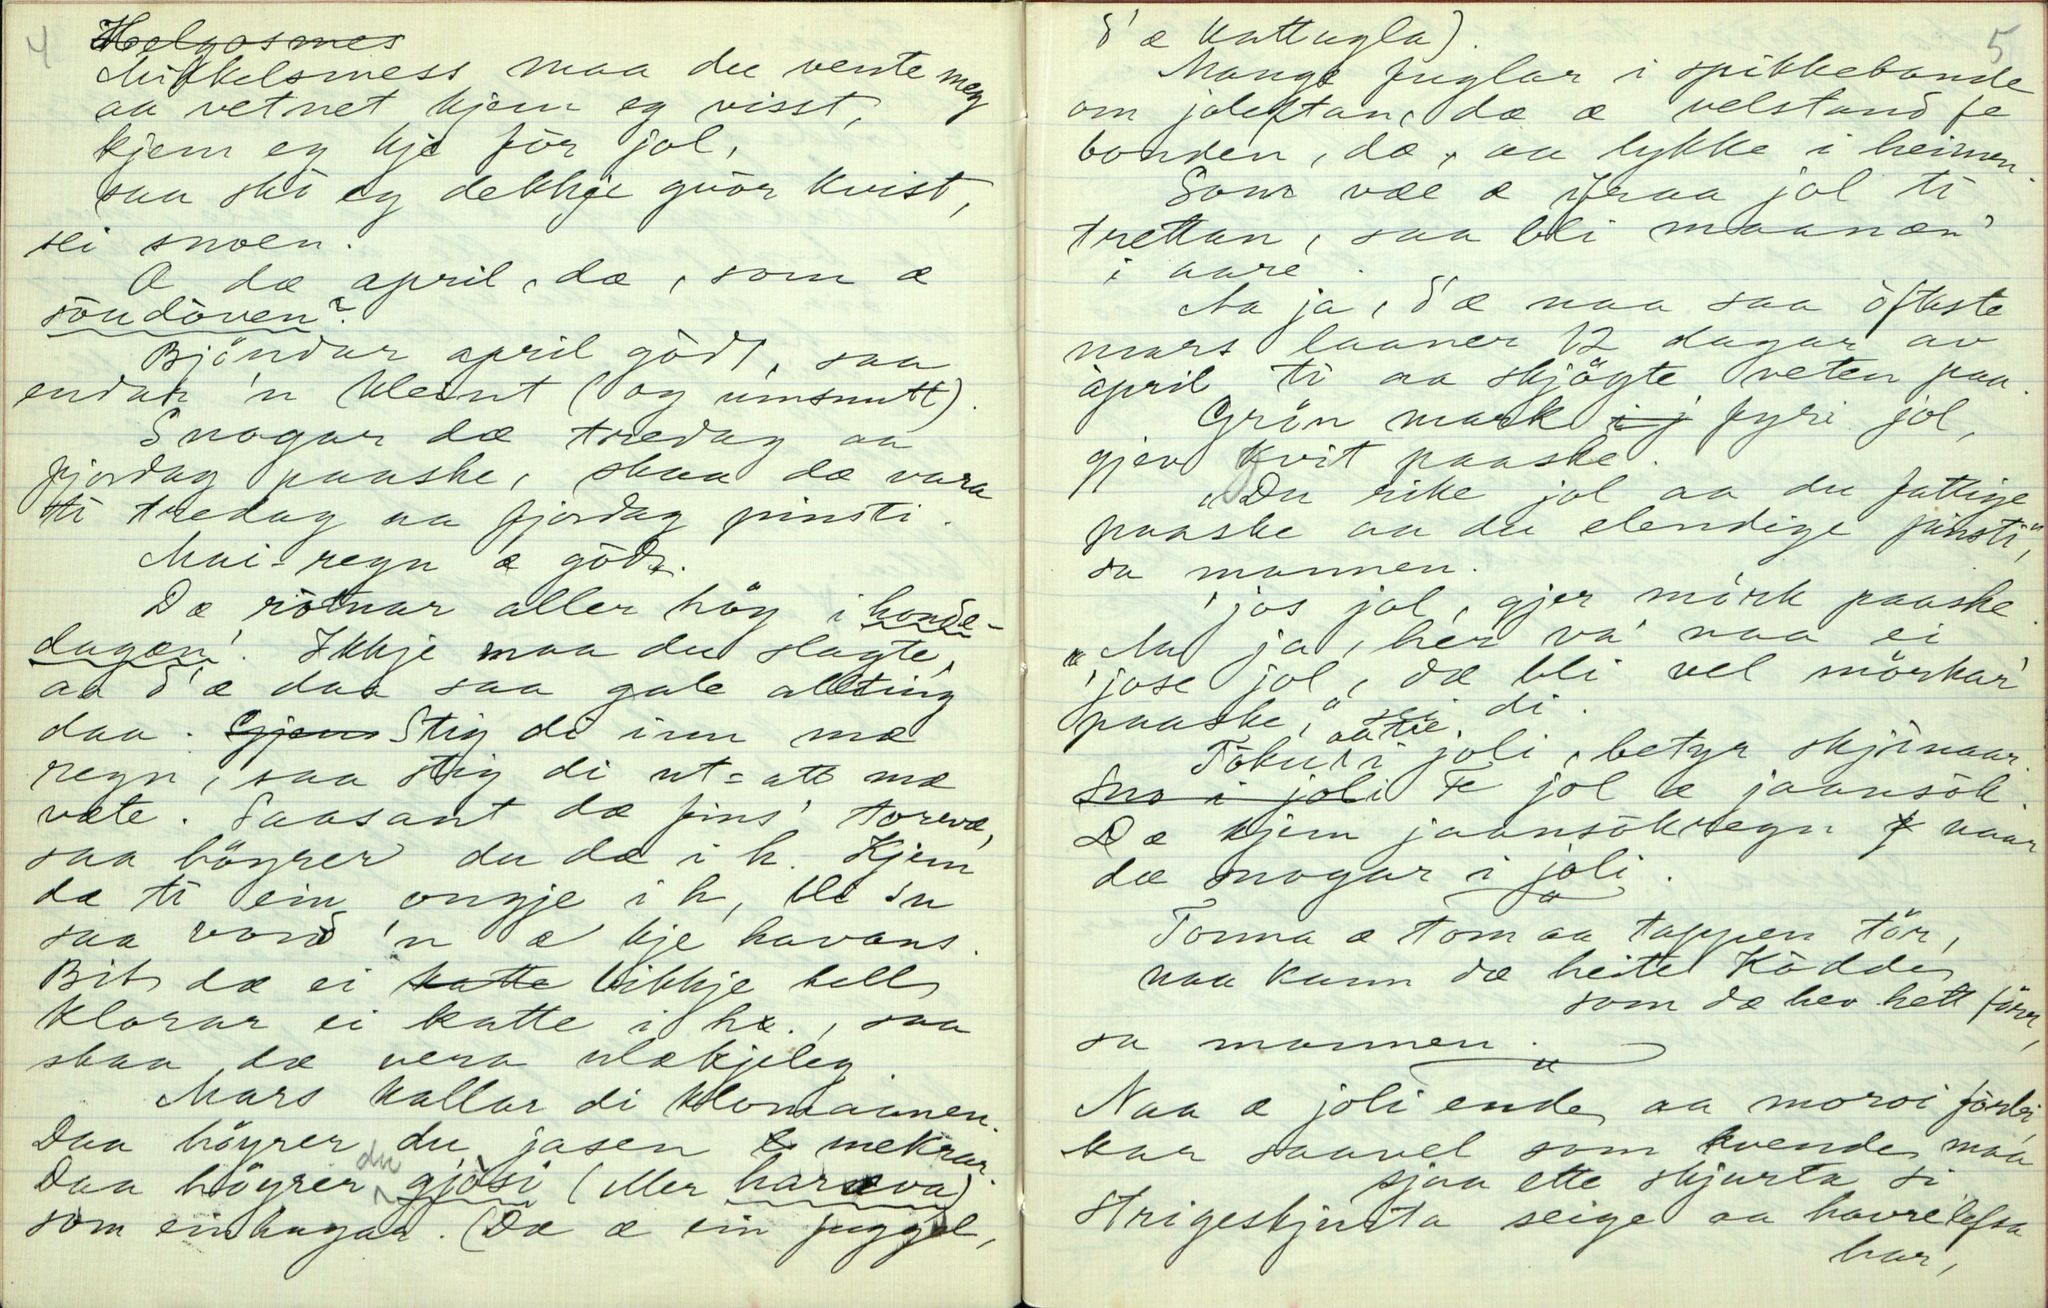 4
Helgosmes
Mikkelsmess maa du vente meg
aa vetnet kjem eg visst,
kjem eg kje för jol,
saa ska eg dekkje qvör kvist,
sei snoen.
O dæ april, dæ, som æ
söndöven?
Bjöndar april gödt, saa
endar 'n kleint (og umsnutt).
Snogar dæ tredag aa
fjordag paaske, skaa dæ vara
ti tredag aa fjordag pinsti.
Mai-regn æ gödt.
Dæ rotnar aller höy i honde-
dagan'. Ikkje maa du slagte,
aa d'æ daa saa gale allting
daa. Gjem Stig di inn mæ
regn, saa stig di ut-att mæ
væte. Saasant dæ fins' torevæ,
saa höyrer du dæ i h. Kjem
dæ ti ein ongje i h, bli du
saa vond 'n æ kje havans.
Bit dæ ei katte bikkje hell
klorar ei katte i h., saa
skaa dæ vera ulækjeleg.
Mars kallar di klomaanen.
Daa höyrer du jasen mekrar.
Daa höyrer du gjösi (eller haræva)
som ein hugar. (Dæ æ ein fuggel,
5
d'æ kattugla).
Mange fuglar i spikkebande
om joleftan, dæ æ velstand fe
bonden, dæ, aa lykke i heimen.
Som væe æ ifraa jol ti
trettan, saa bli maanan'
i aare.
Aa ja, d'æ naa saa öftaste
mars laaner 12 dagar av
april ti aa skjögte veten paa.
Grön mark i j fyri jol,
gjev kvit paaske.
"Du rike jol aa du fattige
paaske aa du elendige pinsti,"
sa mannen.
'jos jol, gjer mörk paaske.
"Aa ja, her va' naa ei
'jose jol, dæ bli vel mörkar'
paaske," sei di.
Tökur i joli, betyr skjinaar.
Sno i joli Fe jol æ jaansök.
Dæ kjem jaansökregn naar
dæ snogar i joli.
Tonna æ tom aa tappen tör,
naa kann dæ heite Ködde,
som dæ hev hett förr,
sa mannen.
Naa æ joli ende, aa moroi förbi,
kar saavel som kvende maa
sjaa ette skjurta si
Strigeskjurta seige aa havrelefsa
har,